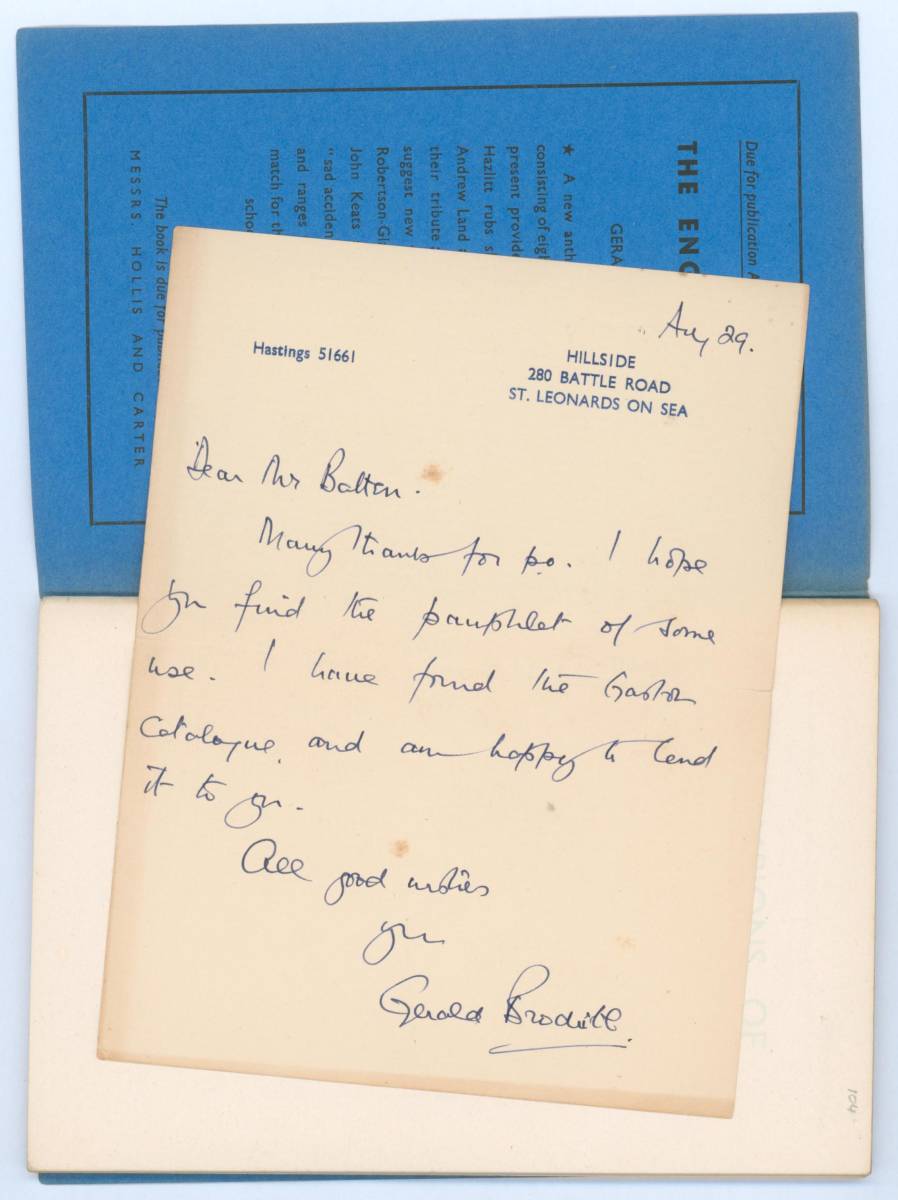 Due for publication A
THE ENG
GERA
★ A new anth
consisting of eigh
present provide
Hazlitt rubs s
Andrew Land a
their tribute
suggest new
Robertson-Gl
John Keats
"sad acciden
and ranges
match for th
schoo
The book is due for publi
MESSRS. HOLLIS AND CARTER
Aug 29.
Hastings 51661
HILLSIDE
280 BATTLE ROAD
ST. LEONARDS ON SEA
Dear Mr Batten.
Many thanks for po. I hope
you find the pamphlet of some
use. I have found the Gaston
Catalogue, and am happy to lend
it to you.
All good wishes
yrs
Gerald Brodribb.
OF
104